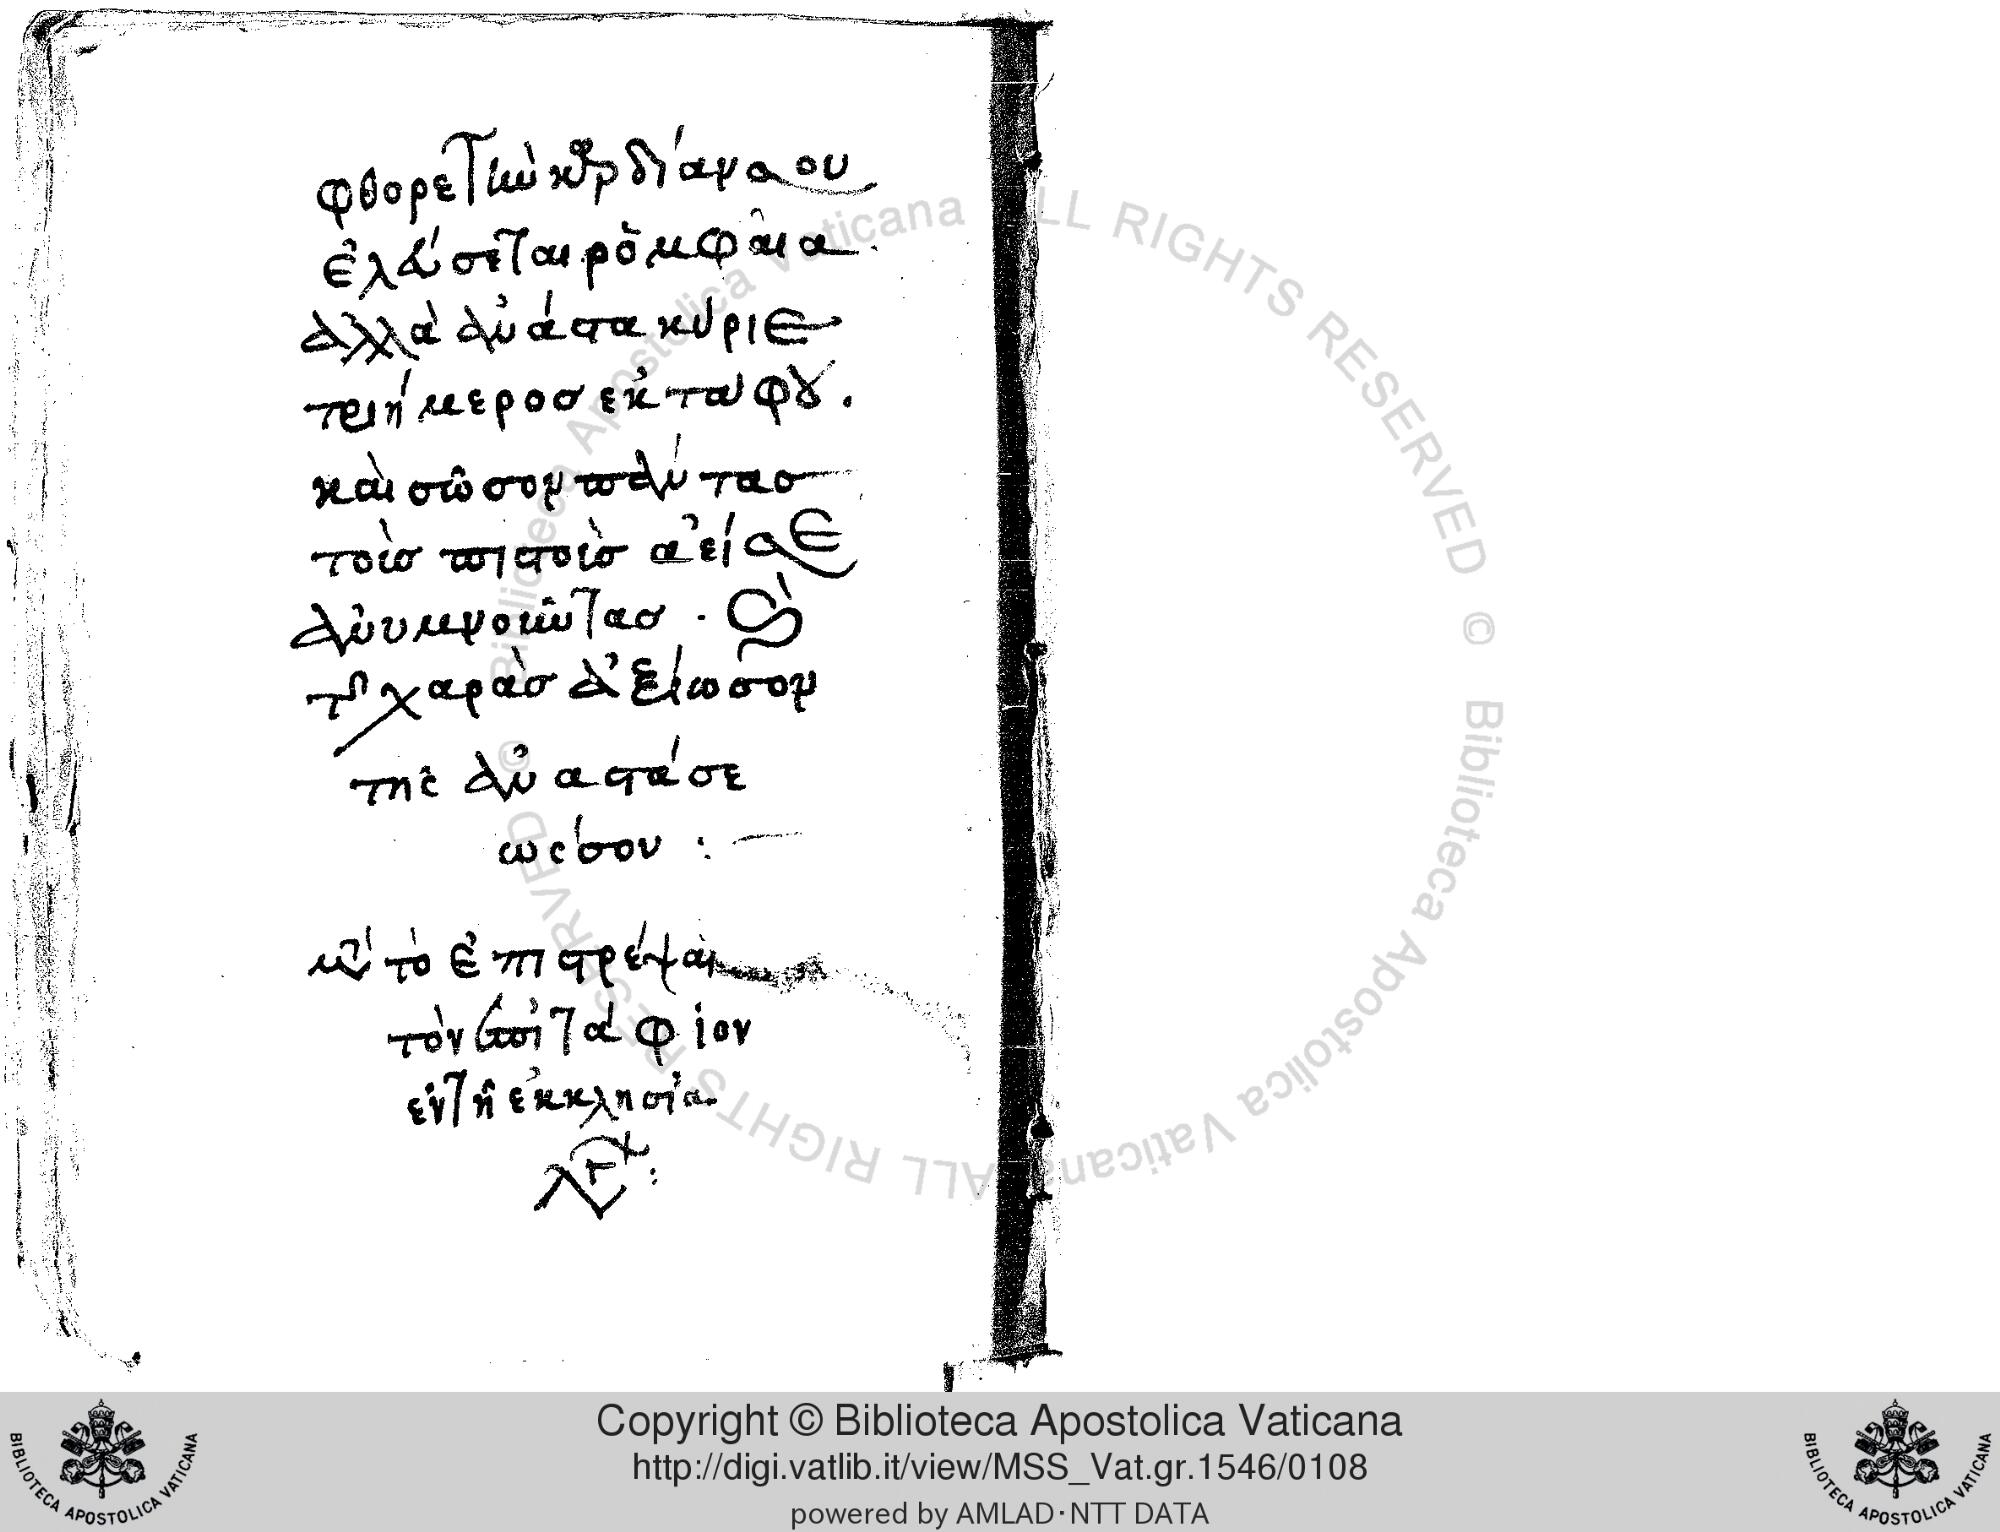 φθορε τὴν καρδίαν σου
ἐλεύσεται ρὸμφαῖα.
ἀλλὰ ἀνάστα κύριε
τριήμεροσ ἐκ τάφου.
καὶ σῶσον πάντασ
τοῖσ πιστοῖσ ἀεί σε
ἀνυμνοῦντασ. καὶ
τῆς χαρᾶσ ἀξίωσον
τῆς ἀναστάσε
ώς σου :
τὸ ἐπιστρέψαι
τὸν ἐπιτάφιον
ἐν τῆ ἐκκλησία
Copyright © Biblioteca Apostolica Vaticana
http://digi.vatlib.it/view/MSS_Vat.gr.1546/0108
powered by AMLAD·NTT DATA
BIBLIOTECA APOSTOLICA VATICANA
BIBLIOTECA APOSTOLICA VATICANA
© Biblioteca Apostolica Vaticana ALL RIGHTS RESERVED © Biblioteca Apostolica Vaticana ALL RIGHTS RESERVED